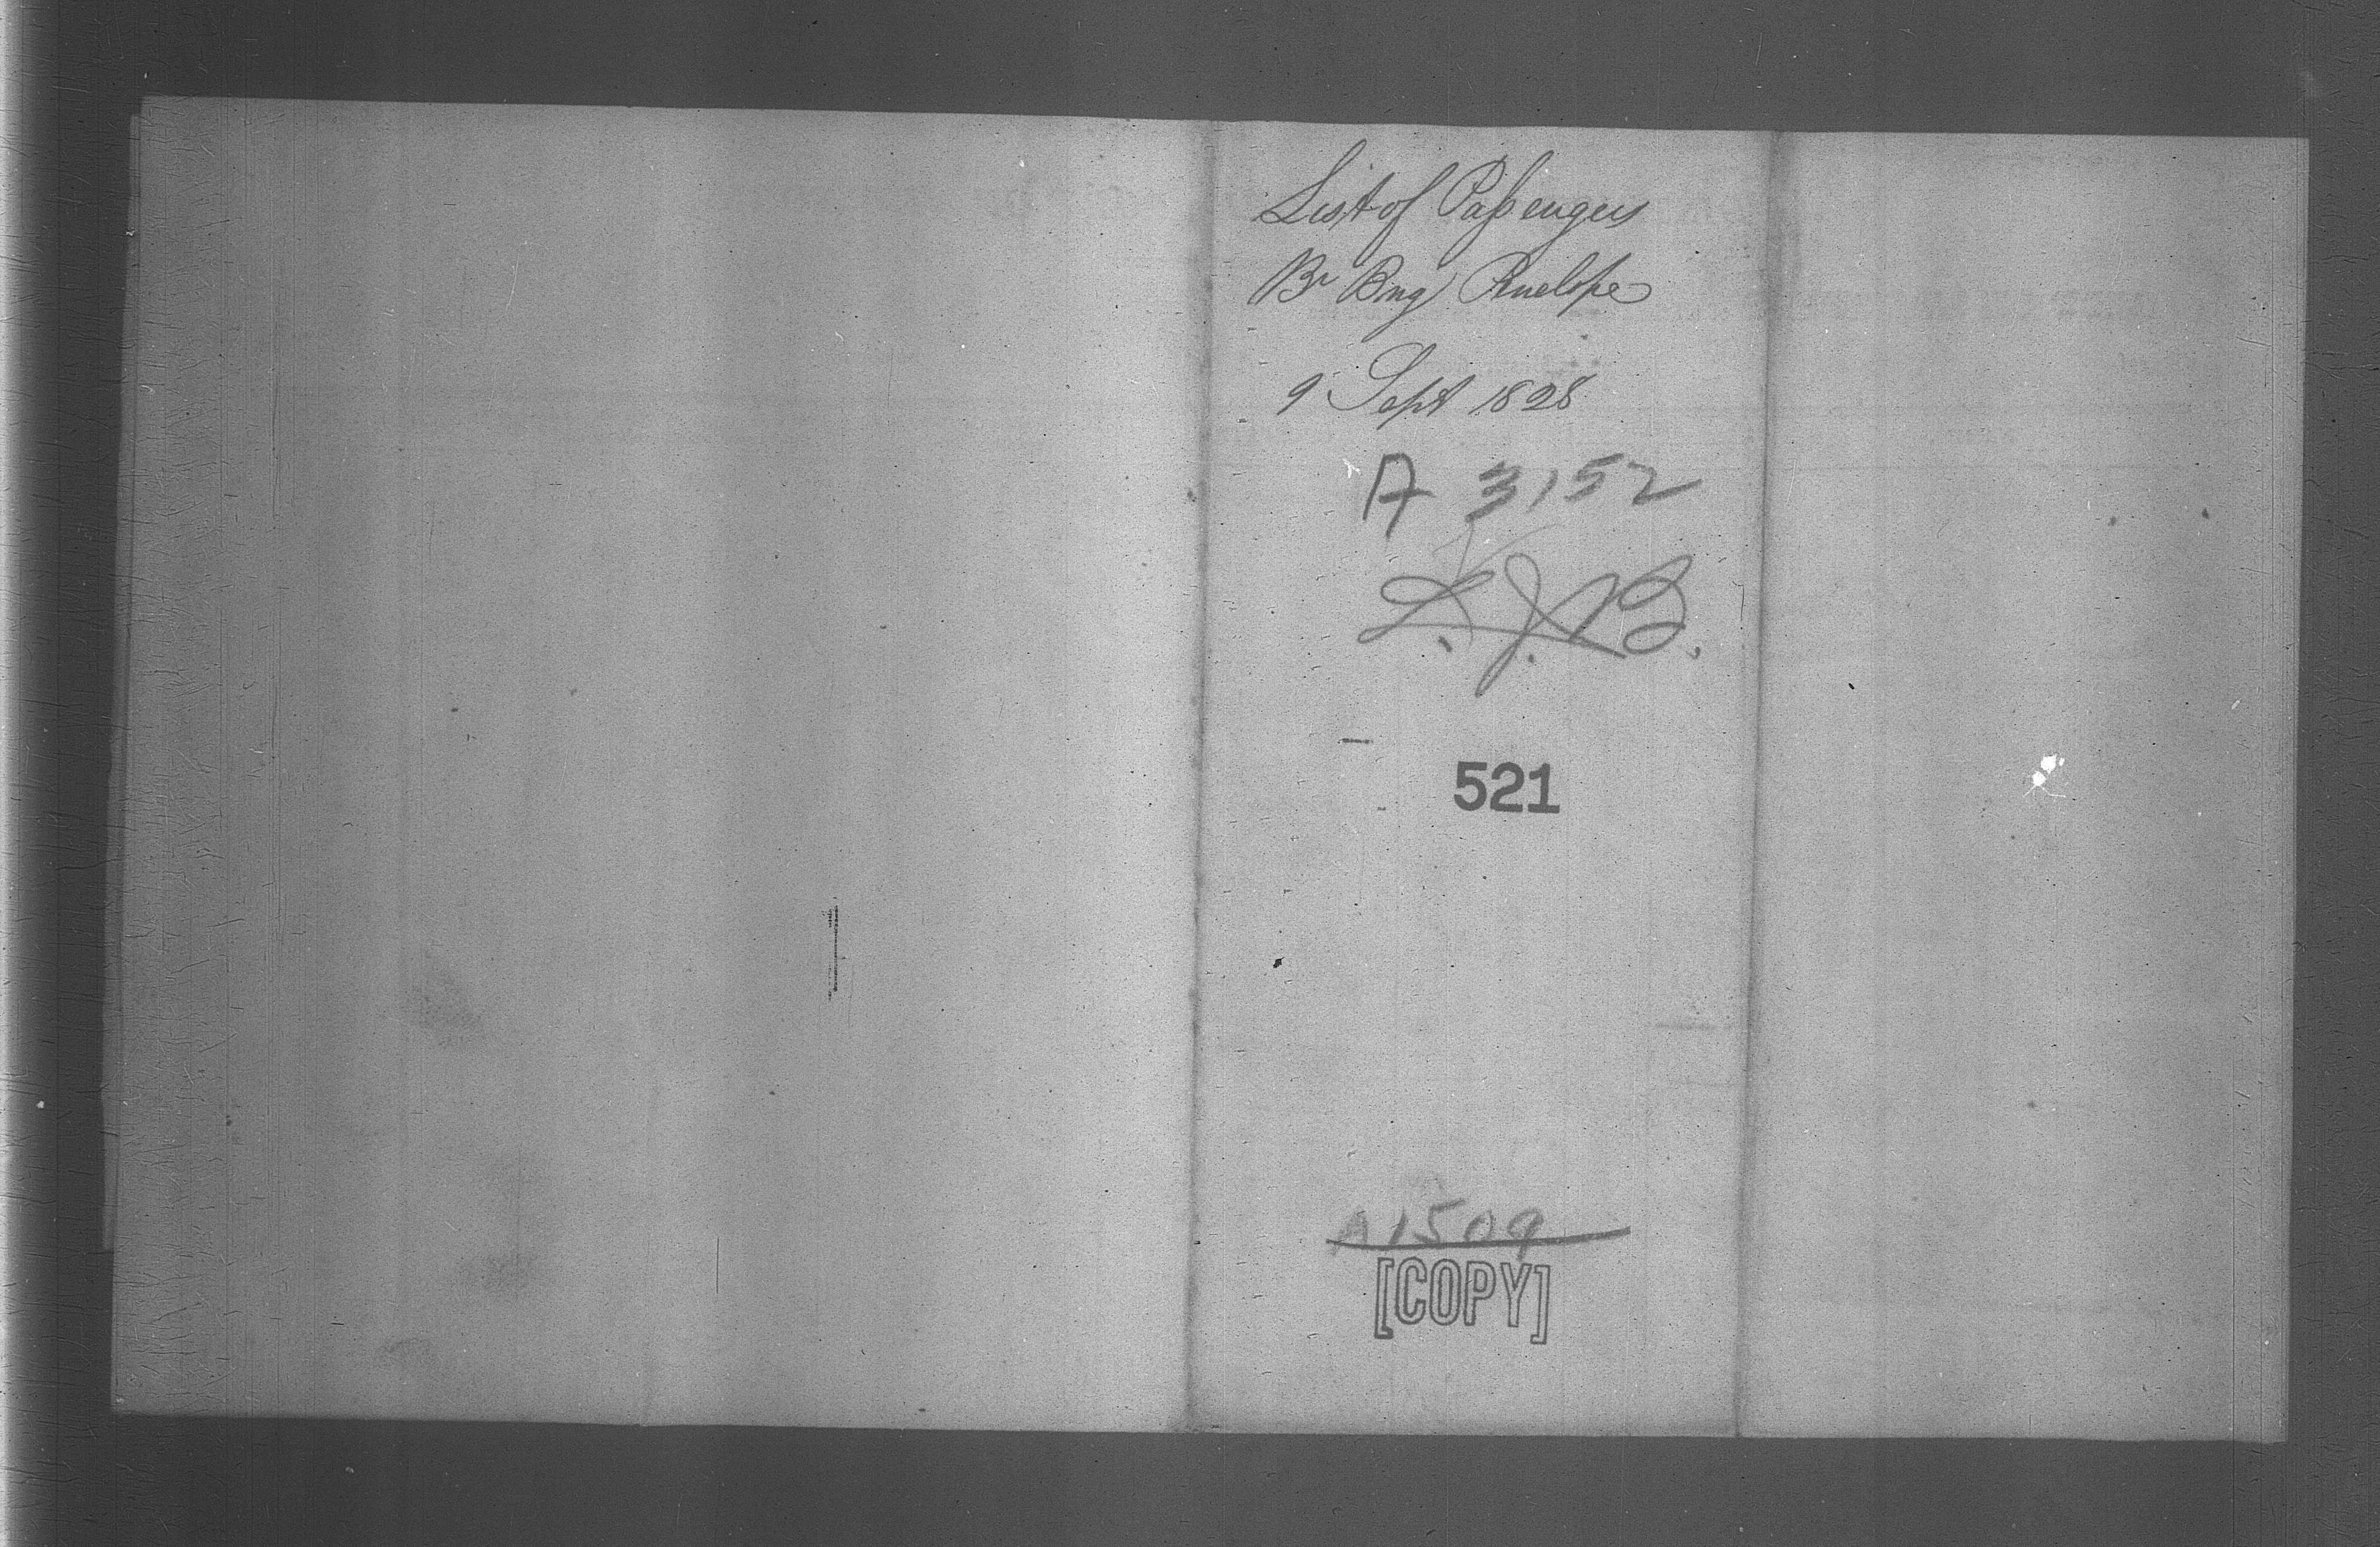 List of Passengers
Br Brig Penelope
9 Sept 1828
A 3152
L. J. B.
521
A 1509
[COPY]